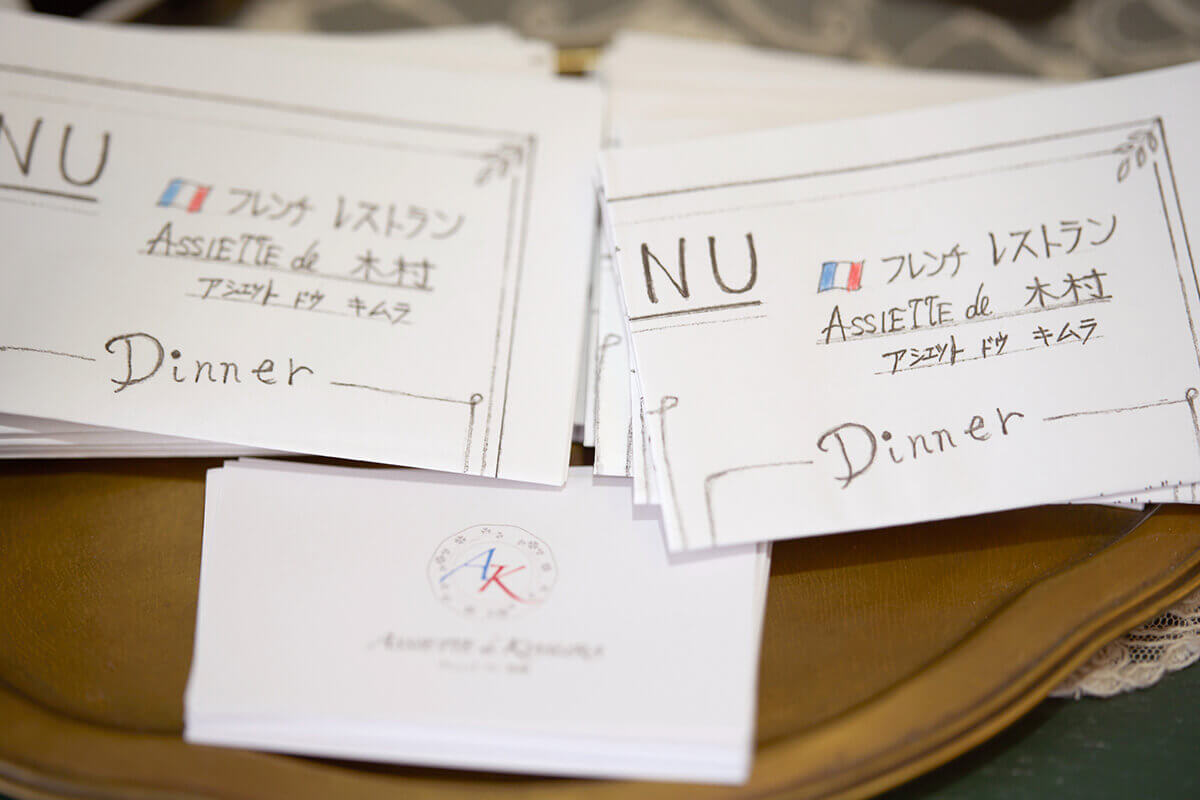 NU
フレンチ レストラン
ASSIETTE de 木村
アシエット ドゥ キムラ
Dinner
NU
フレンチ レストラン
ASSIETTE de 木村
アシエット ドゥ キムラ
Dinner
AK